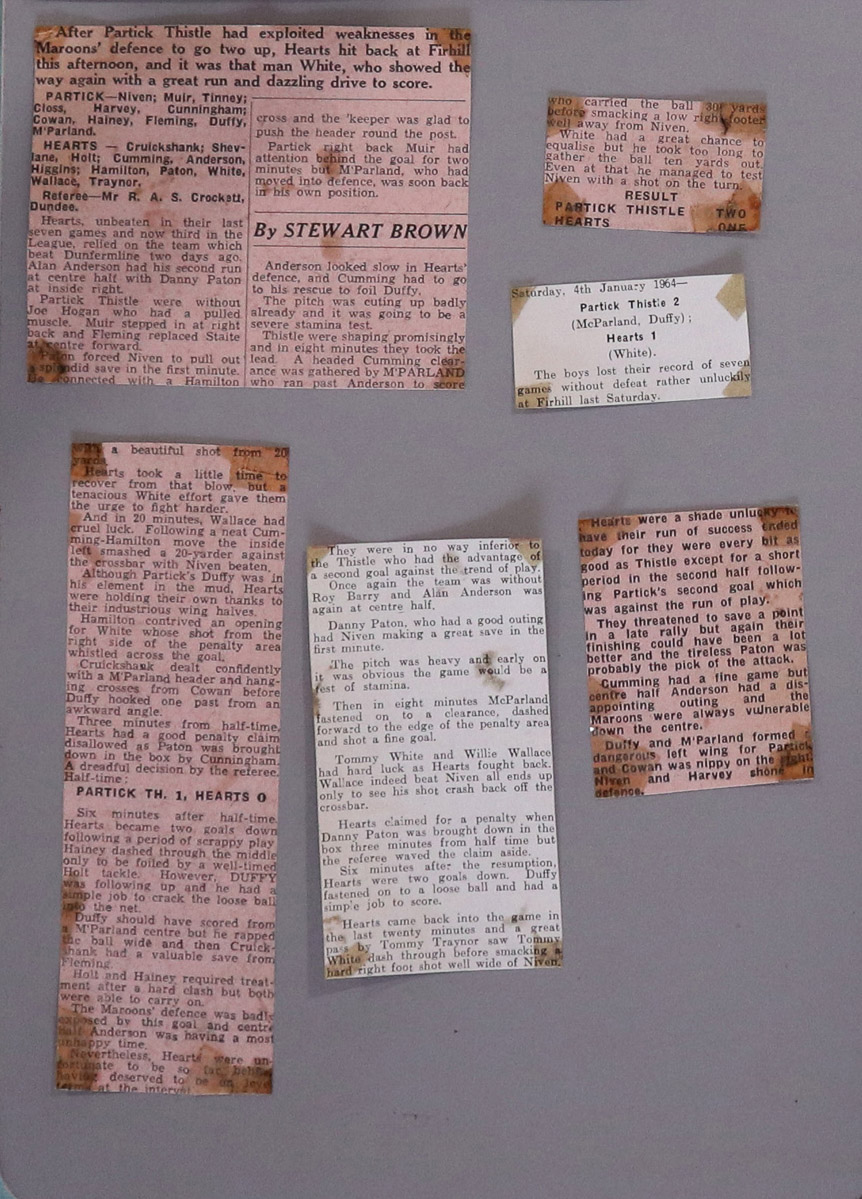 After Partick Thistle had exploited weaknesses in the
Maroons' defence to go two up, Hearts hit back at Firhill
this afternoon, and it was that man White, who showed the
way again with a great run and dazzling drive to score.
PARTICK—Niven; Muir, Tinney;
Closs, Harvey, Cunningham;
Cowan, Hainey, Fleming, Duffy,
M'Parland.
HEARTS — Cruickshank; Shev-
lane, Holt; Cumming, Anderson,
Higgins; Hamilton, Paton, White,
Wallace, Traynor.
Referee—Mr R. A. S. Crockett,
Dundee.
Hearts, unbeaten in their last
seven games and now third in the
League, relied on the team which
beat Dunfermline two days ago.
Alan Anderson had his second run
at centre half with Danny Paton
at inside right.
Partick Thistle were without
Joe Hogan who had a pulled
muscle. Muir stepped in at right
back and Fleming replaced Staite
at centre forward.
Paton forced Niven to pull out
a splendid save in the first minute.
He connected with a Hamilton
cross and the 'keeper was glad to
push the header round the post.
Partick right back Muir had
attention behind the goal for two
minutes but M'Parland, who had
moved into defence, was soon back
in his own position.
By STEWART BROWN
Anderson looked slow in Hearts'
defence, and Cumming had to go
to his rescue to foil Duffy.
The pitch was cuting up badly
already and it was going to be a
severe stamina test.
Thistle were shaping promisingly
and in eight minutes they took the
lead. A headed Cumming clear-
ance was gathered by M'PARLAND
who ran past Anderson to score
with a beautiful shot from 20
yards.
Hearts took a little time to
recover from that blow, but a
tenacious White effort gave them
the urge to fight harder.
And in 20 minutes, Wallace had
cruel luck. Following a neat Cum-
ming-Hamilton move the inside
left smashed a 20-yarder against
the crossbar with Niven beaten.
Although Partick's Duffy was in
his element in the mud, Hearts
were holding their own thanks to
their industrious wing halves.
Hamilton contrived an opening
for White whose shot from the
right side of the penalty area
whistled across the goal.
Cruickshank dealt confidently
with a M'Parland header and hang-
ing crosses from Cowan before
Duffy hooked one past from an
awkward angle.
Three minutes from half-time,
Hearts had a good penalty claim
disallowed as Paton was brought
down in the box by Cunningham.
A dreadful decision by the referee.
Half-time:
PARTICK TH. 1, HEARTS 0
Six minutes after half-time,
Hearts became two goals down
following a period of scrappy play
Hainey dashed through the middle
only to be foiled by a well-timed
Holt tackle. However, DUFFY
was following up and he had a
simple job to crack the loose ball
into the net.
Duffy should have scored from
a M'Parland centre but he rapped
the ball wide and then Cruick-
shank had a valuable save from
Fleming.
Holt and Hainey required treat-
ment after a hard clash but both
were able to carry on.
The Maroons' defence was badly
exposed by this goal and centre
half Anderson was having a most
unhappy time.
Nevertheless, Hearts were un-
fortunate to be so far behind
having deserved to be on level
terms at the interval
who carried the ball 30 yards
before smacking a low right footer
well away from Niven.
White had a great chance to
equalise but he took too long to
gather the ball ten yards out.
Even at that he managed to test
Niven with a shot on the turn.
RESULT
PARTICK THISTLE TWO
HEARTS ONE
Saturday, 4th January 1964—
Partick Thistle 2
(McParland, Duffy);
Hearts 1
(White).
The boys lost their record of seven
games without defeat rather unluckily
at Firhill last Saturday.
They were in no way inferior to
the Thistle who had the advantage of
a second goal against the trend of play.
Once again the team was without
Roy Barry and Alan Anderson was
again at centre half.
Danny Paton, who had a good outing
had Niven making a great save in the
first minute.
The pitch was heavy and early on
it was obvious the game would be a
test of stamina.
Then in eight minutes McParland
fastened on to a clearance, dashed
forward to the edge of the penalty area
and shot a fine goal.
Tommy White and Willie Wallace
had hard luck as Hearts fought back.
Wallace indeed beat Niven all ends up
only to see his shot crash back off the
crossbar.
Hearts claimed for a penalty when
Danny Paton was brought down in the
box three minutes from half time but
the referee waved the claim aside.
Six minutes after the resumption,
Hearts were two goals down. Duffy
fastened on to a loose ball and had a
simple job to score.
Hearts came back into the game in
the last twenty minutes and a great
pass by Tommy Traynor saw Tommy
White dash through before smacking a
hard right foot shot well wide of Niven.
Hearts were a shade unlucky to
have their run of success ended
today for they were every bit as
good as Thistle except for a short
period in the second half follow-
ing Partick's second goal which
was against the run of play.
They threatened to save a point
in a late rally but again their
finishing could have been a lot
better and the tireless Paton was
probably the pick of the attack.
Cumming had a fine game but
centre half Anderson had a dis-
appointing outing and the
Maroons were always vulnerable
down the centre.
Duffy and M'Parland formed a
dangerous left wing for Partick
and Cowan was nippy on the right.
Niven and Harvey shone in
defence.